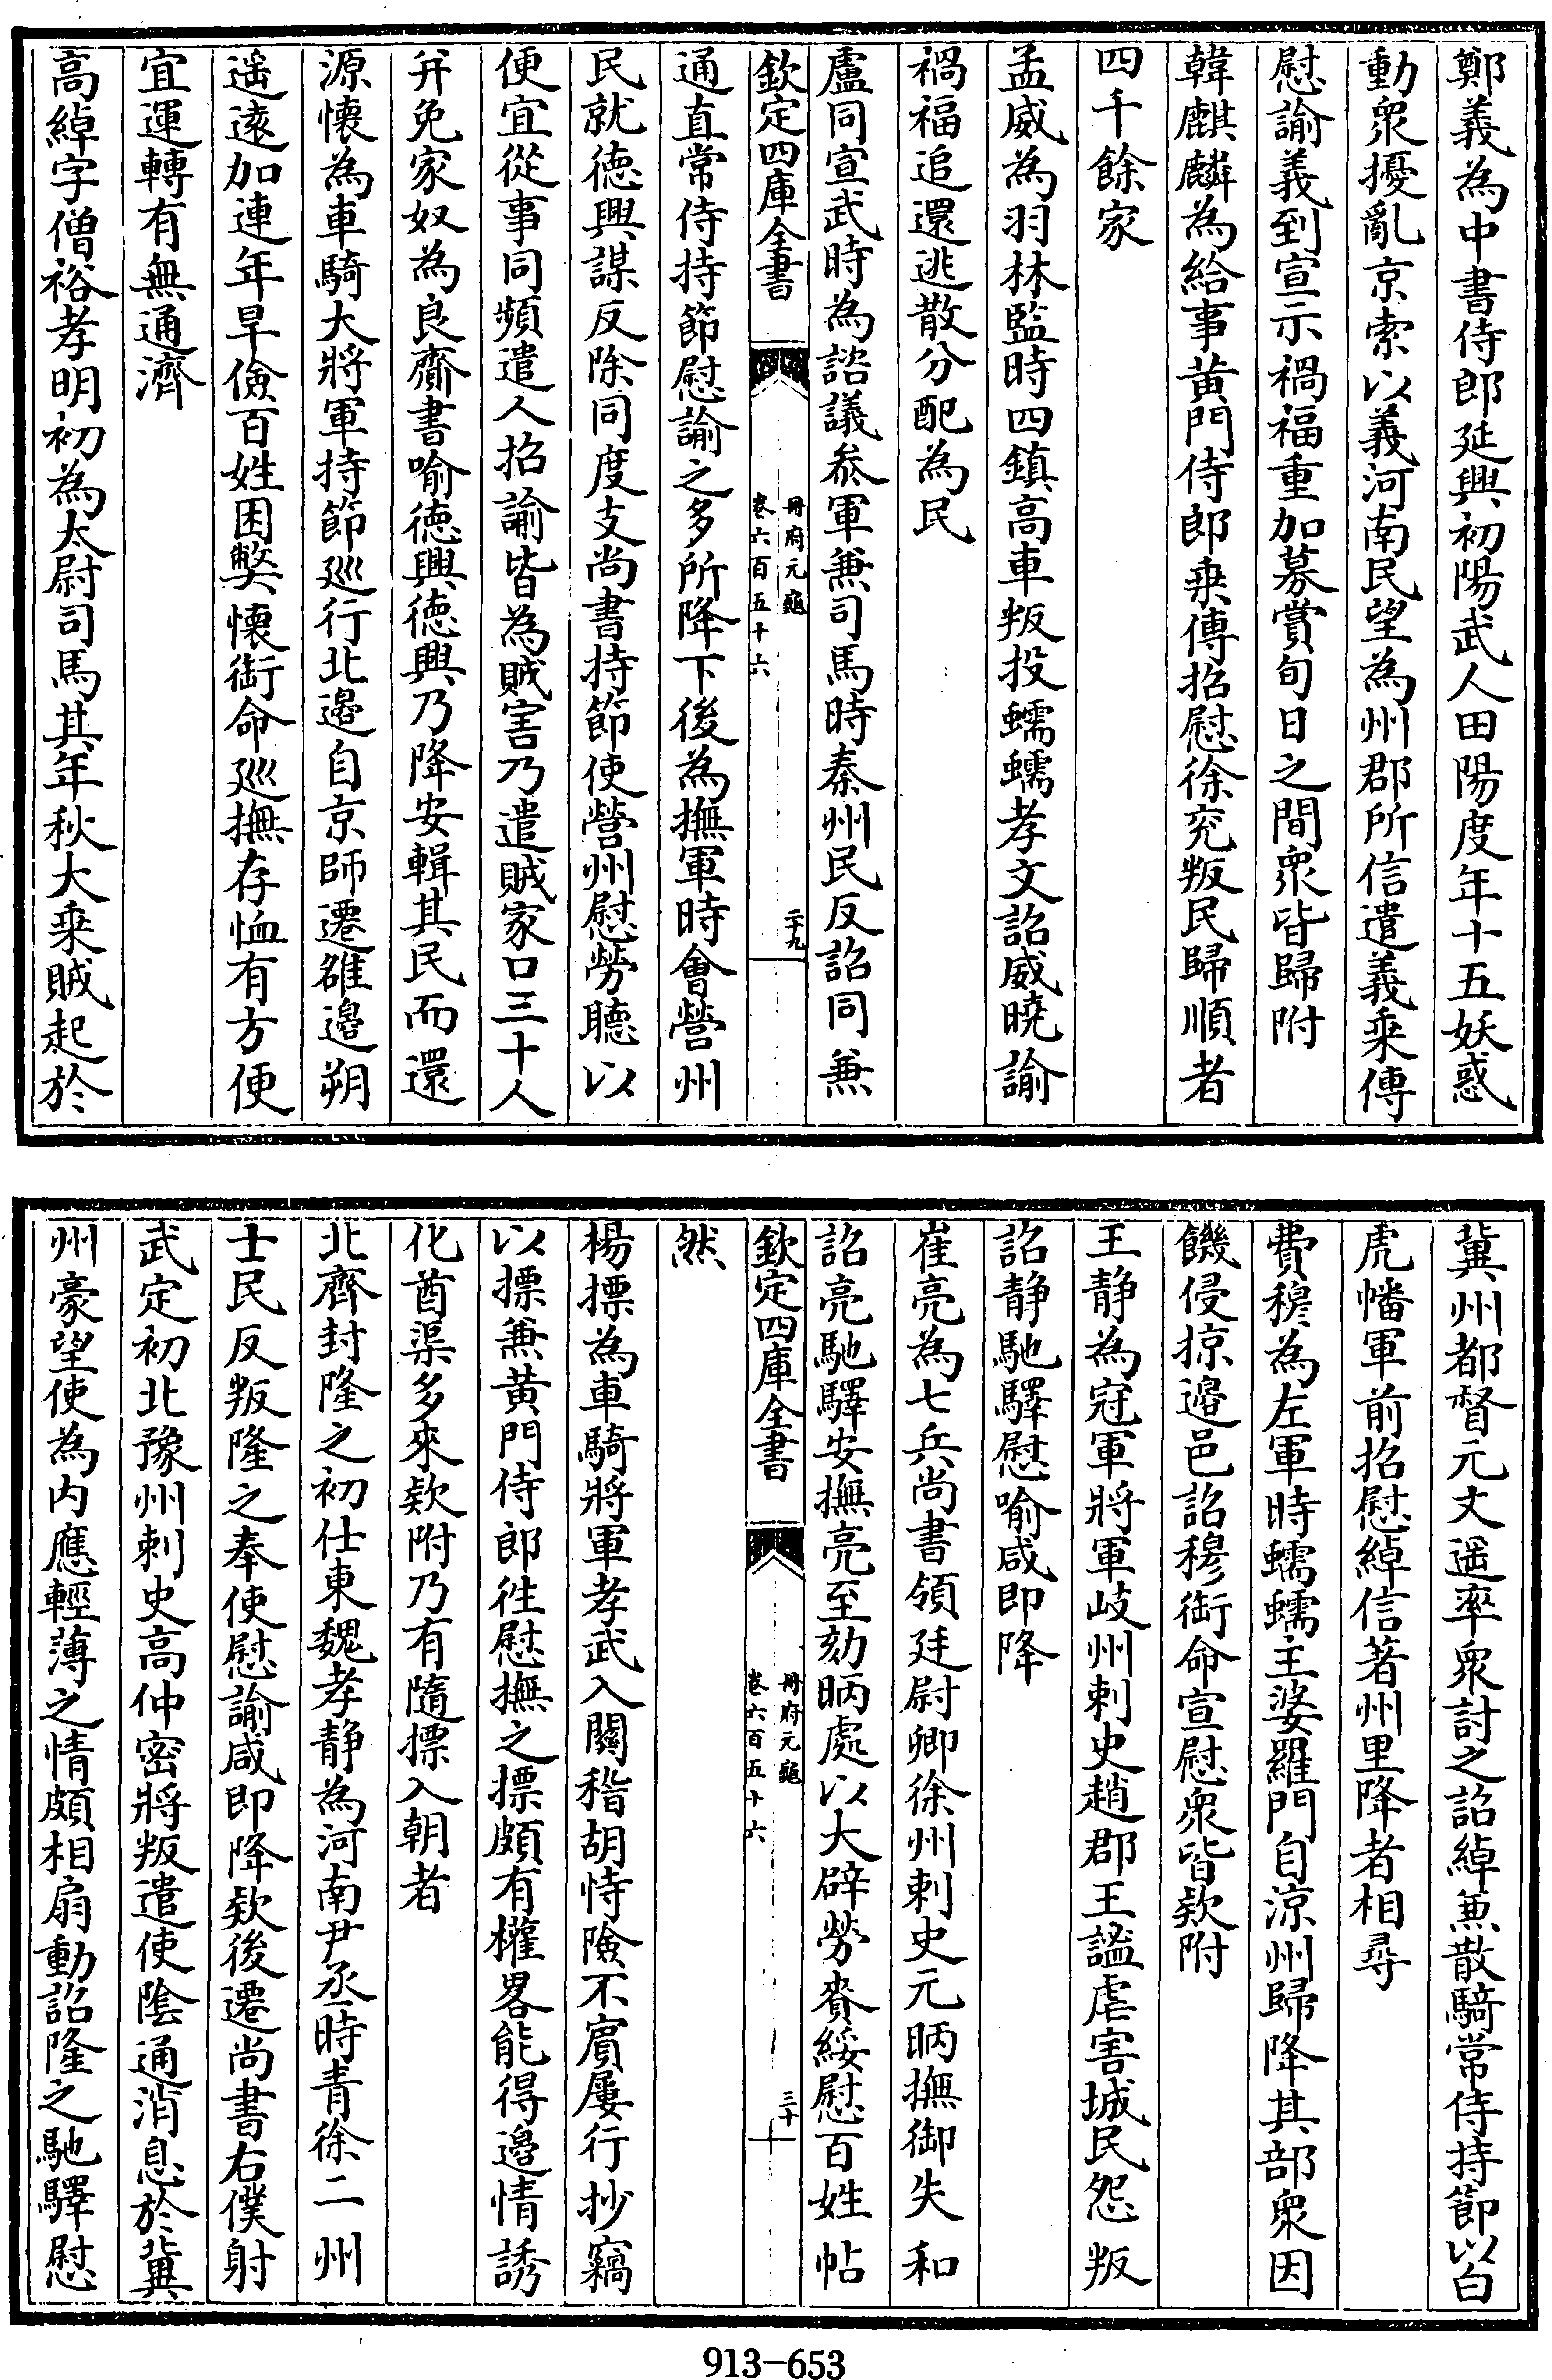 鄭義為中書侍郎延興初陽武人田陽度年十五妖惑
動衆擾亂京索以義河南民望為州郡所信遣義乘傳
慰諭義到宣示禍福重加募賞旬日之間衆皆歸附
韓麒麟為給事黄門侍郎乘傳招慰徐兖叛民歸順者
四千餘家
孟威為羽林監時四鎮髙車叛投蠕蠕孝文詔威曉諭
禍福追還逃散分配為民
盧同宣武時為諮議叅軍兼司馬時秦州民反詔同兼
欽定四庫全書
冊府元龜
卷六百五十六
二十九
通直常侍持節慰諭之多所降下後為撫軍時會營州
民就徳興謀反除同度支尚書持節使營州慰勞聽以
便宜從事同頻遣人招諭皆為賊害乃遣賊家口三十人
并免家奴為良齎書喻徳興徳興乃降安輯其民而還
源懐為車騎大將軍持節廵行北邉自京師遷雒邉朔
遥逺加連年旱儉百姓困弊懐銜命廵撫存恤有方便
宜運轉有無通濟
高綽字僧裕孝明初為太尉司馬其年秋大乘賊起於
冀州都督元文遥率衆討之詔綽兼散騎常侍持節以白
虎幡軍前招慰綽信著州里降者相尋
費穆為左軍時蠕蠕王婆羅門自涼州歸降其部衆因
饑侵掠邉邑詔穆銜命宣慰衆皆欵附
王静為冠軍將軍岐州刺史趙郡王謐虐害城民怨叛
詔静馳驛慰喻咸即降
崔亮為七兵尚書領廷尉卿徐州刺史元昞撫御失和
詔亮馳驛安撫亮至劾昞處以大辟勞賚綏慰百姓帖
欽定四庫全書
冊府元龜
卷六百五十六
三十
然
楊摽為車騎將軍孝武入關稽胡恃險不賔屢行抄竊
以摽兼黄門侍郎徃慰撫之摽頗有權畧能得邉情誘
化酋渠多來欵附乃有隨摽入朝者
北齊封隆之初仕東魏孝静為河南尹丞時青徐二州
士民反叛隆之奉使慰諭咸即降欵後遷尚書右僕射
武定初北豫州刺史高仲密將叛遣使隂通消息於冀
州豪望使為内應輕薄之情頗相扇動詔隆之馳驛慰
913-653